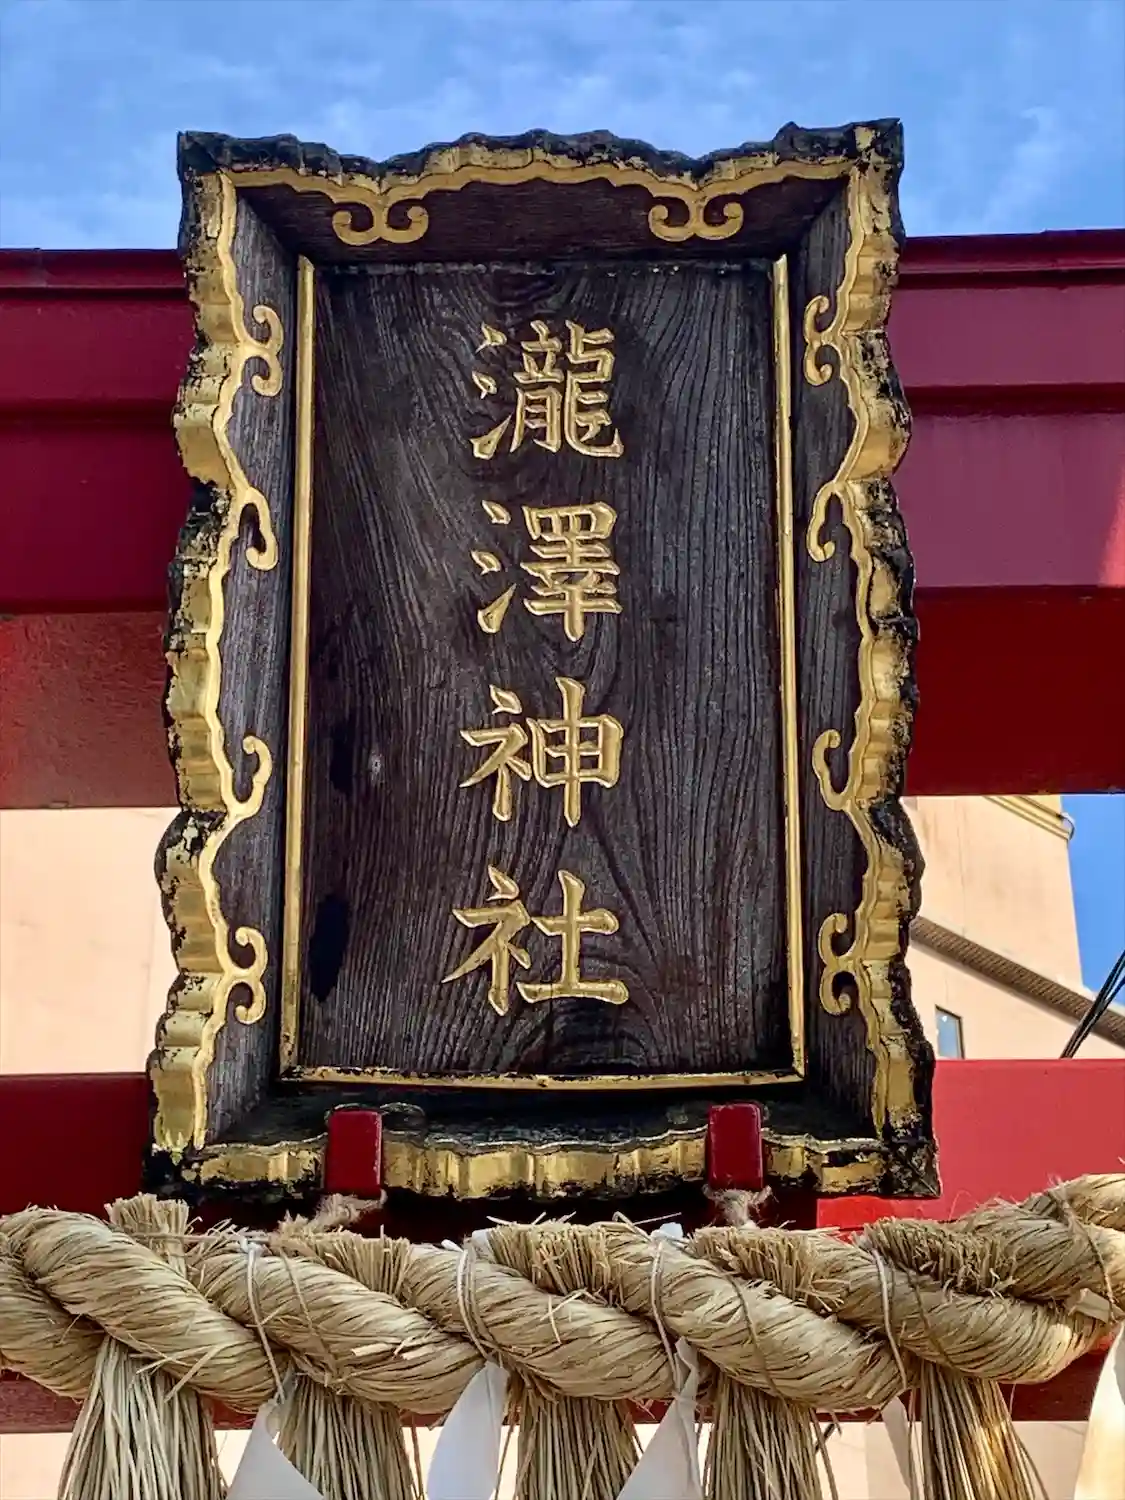 瀧澤神社